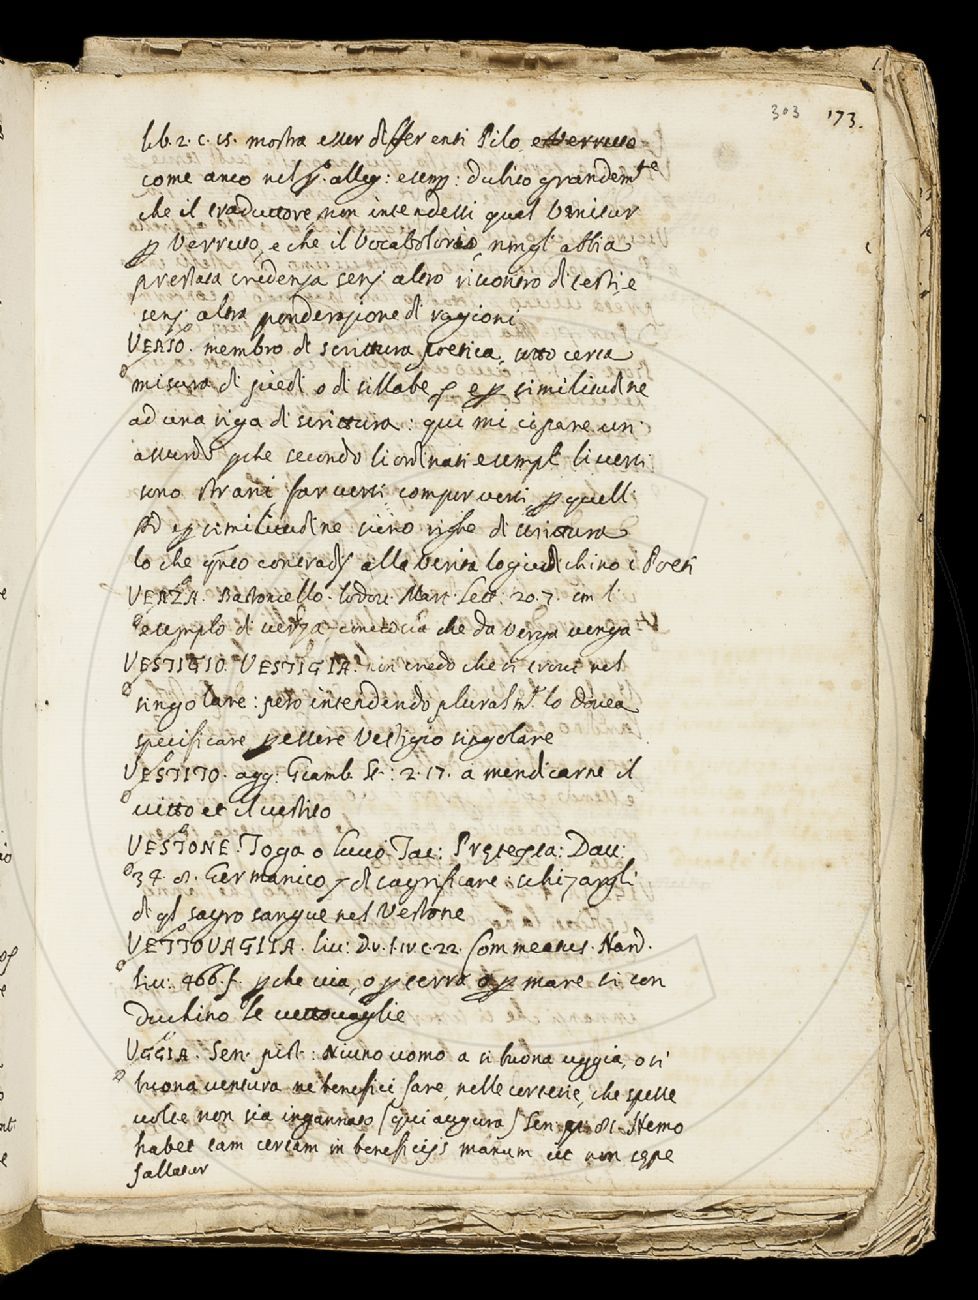 303 173.
lib. 2. c. 15. mostra esser differenti Pilo e Verruto
come anco nel p.º alleg: esemp: dubito grandem.te
che il traduttore non intendessi qual
p Verruto, e che il Vocabolario, abbia
prestata credenza senz altro riscontro di testi, e
senz altra ponderazione di ragioni
VERSO. membro di scrittura poetica, sotto certa
misura di piedi o di sillabe e p similitudine
ad una riga di scrittura: qui mi ci pare un
assurdo pche secondo li ordinati esempli li versi
sono strani far versi compor versi, p quell
p similitudine sieno righe di scrittura
lo che contradi alla verità lo giudichino i Poeti
VERZA. Bastoncello. Lodov. Mart. Lett. 20. 7. cm l
esemplo di verza che da verza venga
VESTIGIO. VESTIGIA. non credo che si trovi nel
singolare: però intendendo plural m.te lo dovea
specificare p essere Vestigio singolare
VESTITO. agg: Giamb. St: 2. 17. a mendicarne il
vitto et il vestito
VESTONE. Toga o Tac: Pretexta: Dav:
34. 8. Germanico di sagrificare: schizzargli
di ql sagro sangue nel Vestone
VETTOVAGLIA. liv: D. v. l. iv c. 22. Commeatus. Nard.
Liv: 466. f. pche via, o p terra o p mare si con
duchino le vettovaglie
UGGIA. Sen. pist: Niuno uomo a si buona uggia, o si
buona ventura ne benefici fare, nelle certezze, che spesse
volte non sia ingannato (qui augura) Sen. 81. Nemo
habet tam certam in beneficijs manum ut non sepe
fallatur